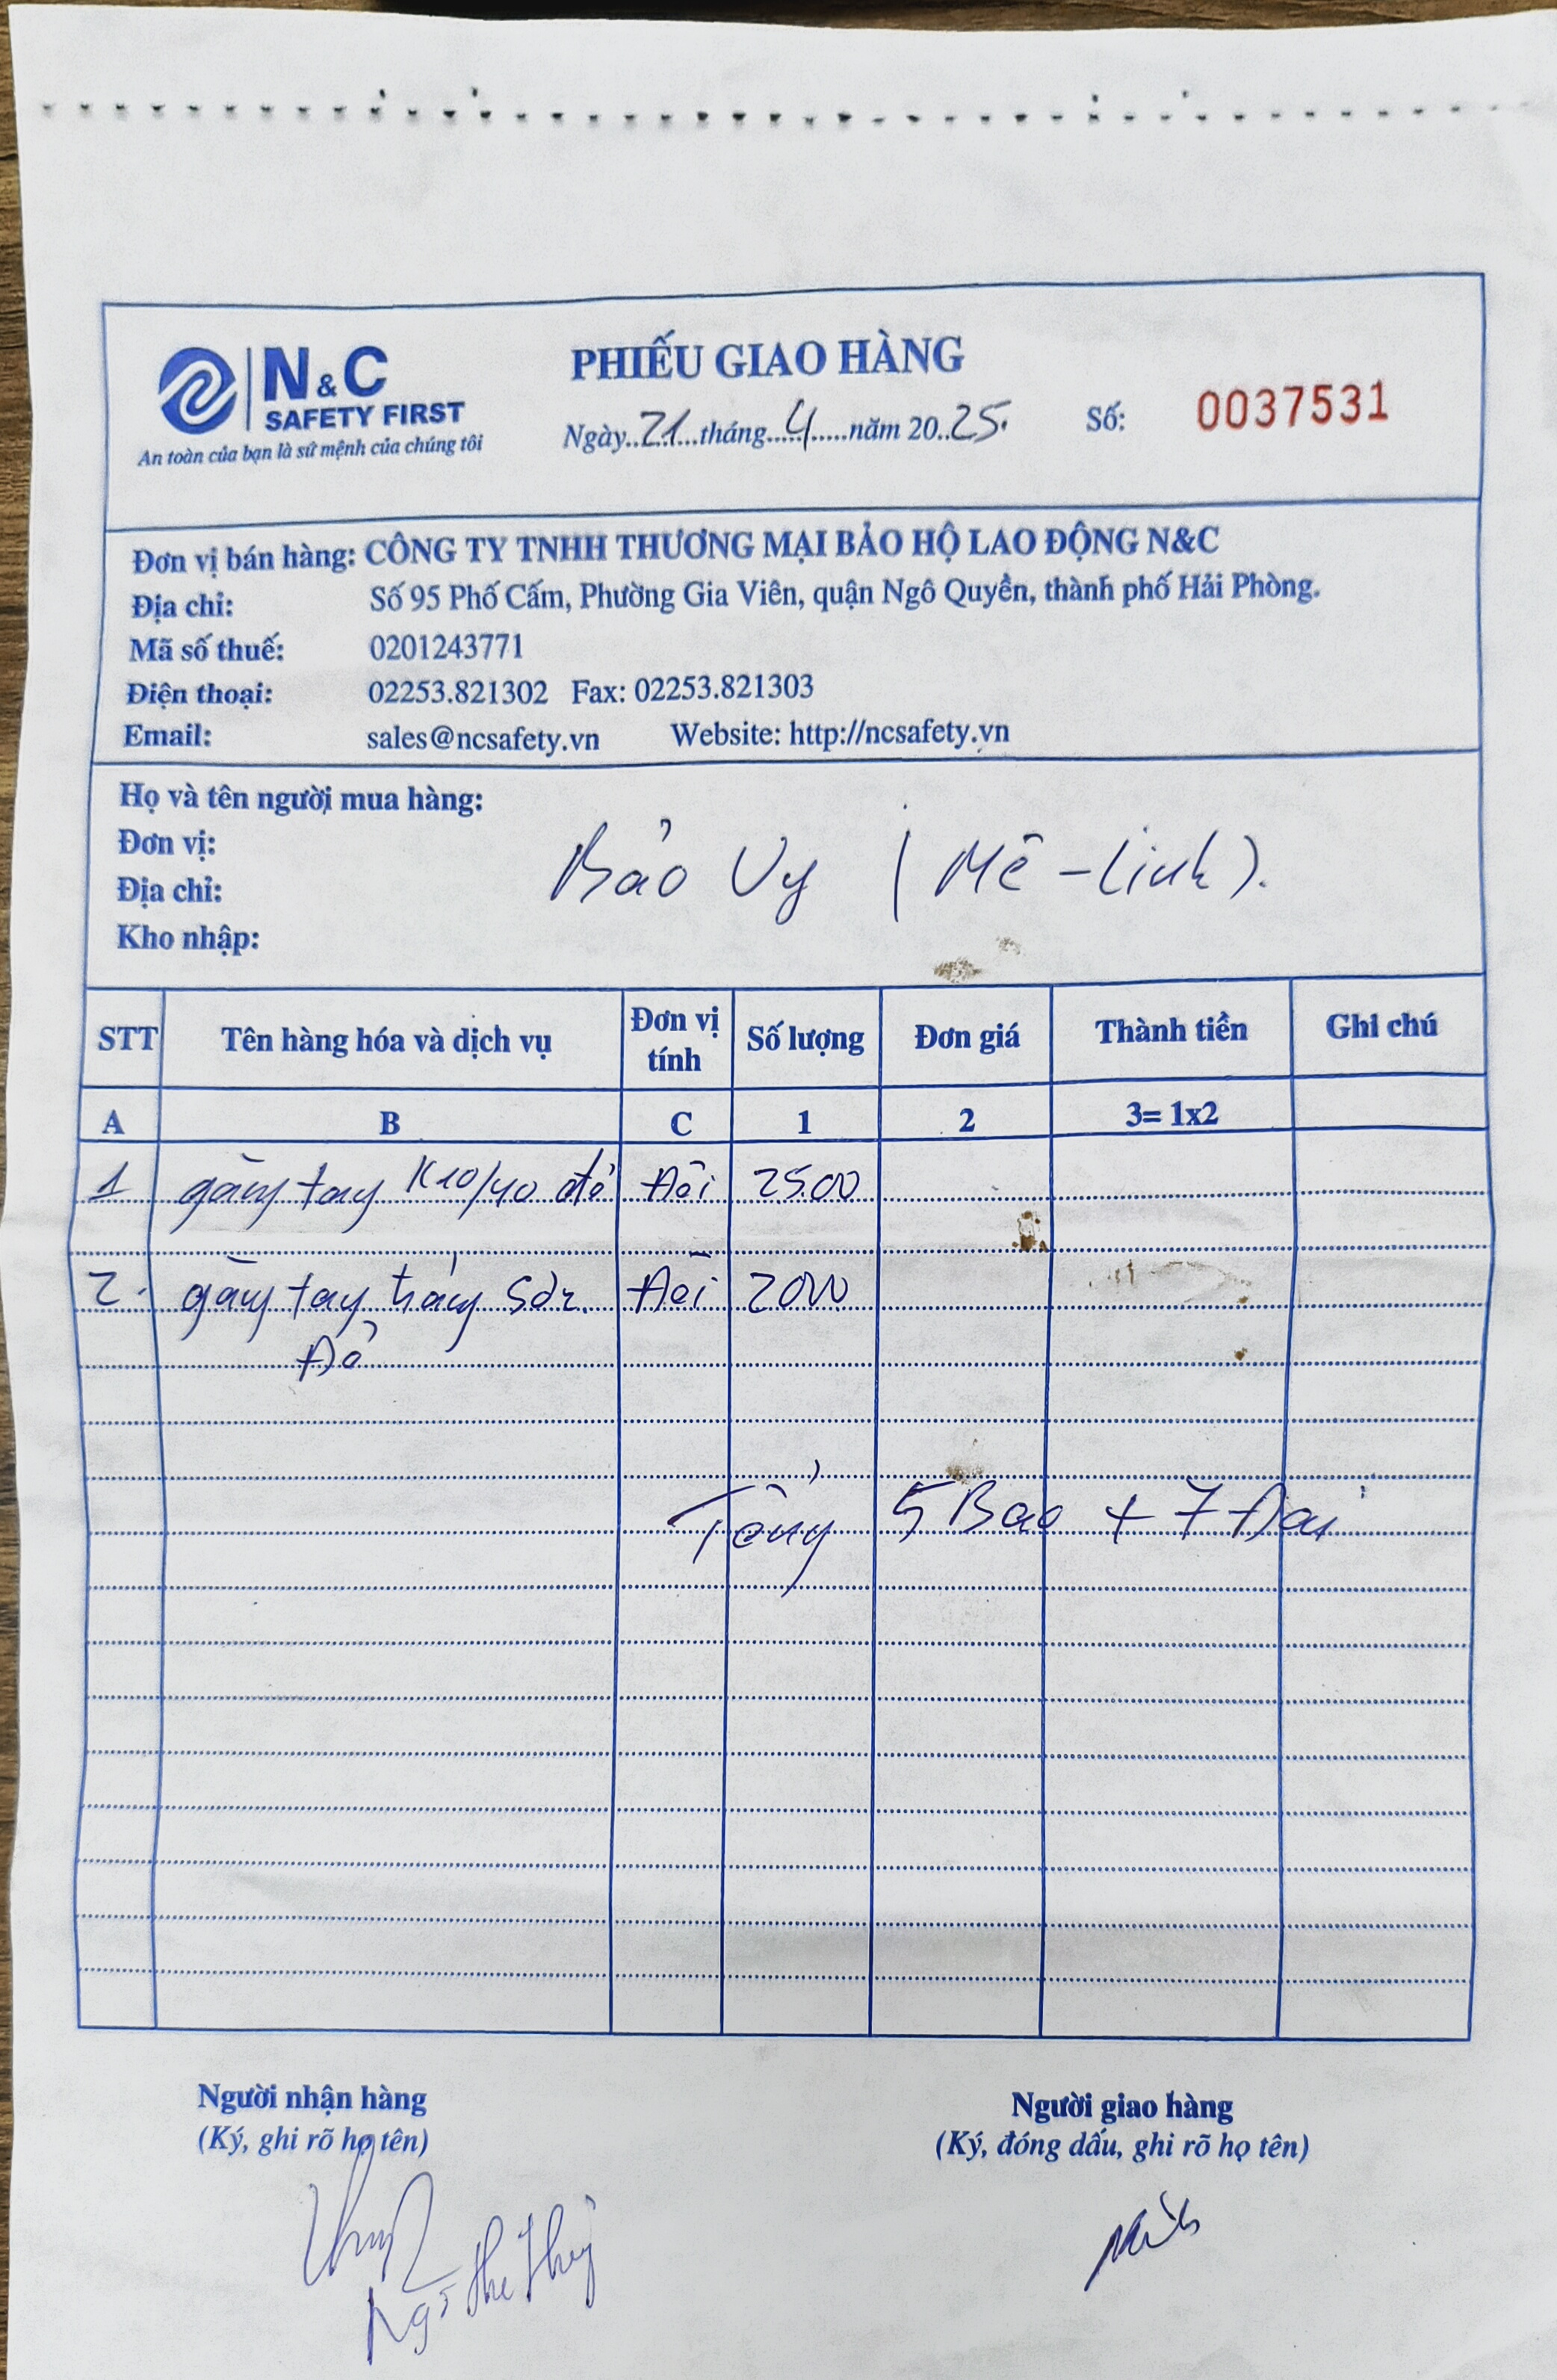 N&C
SAFETY FIRST
An toàn của bạn là sứ mệnh của chúng tôi
PHIẾU GIAO HÀNG
Ngày..21...tháng...4...năm 20..25.
Số: 0037531
Đơn vị bán hàng: CÔNG TY TNHH THƯƠNG MẠI BẢO HỘ LAO ĐỘNG N&C
Địa chỉ: Số 95 Phố Cấm, Phường Gia Viên, quận Ngô Quyền, thành phố Hải Phòng.
Mã số thuế: 0201243771
Điện thoại: 02253.821302 Fax: 02253.821303
Email: sales@ncsafety.vn Website: http://ncsafety.vn
Họ và tên người mua hàng:
Đơn vị:
Bảo Vy (Mê-Linh).
Địa chỉ:
Kho nhập:
STT Tên hàng hóa và dịch vụ Đơn vị tính Số lượng Đơn giá Thành tiền Ghi chú
A B C 1 2 3= 1x2
1 găng tay K10/40 đỏ Đôi 2500
2. găng tay Đôi 2000
Đỏ
Tổng 5 Bao + 7 Đai
Người nhận hàng
(Ký, ghi rõ họ tên)
Người giao hàng
(Ký, đóng dấu, ghi rõ họ tên)